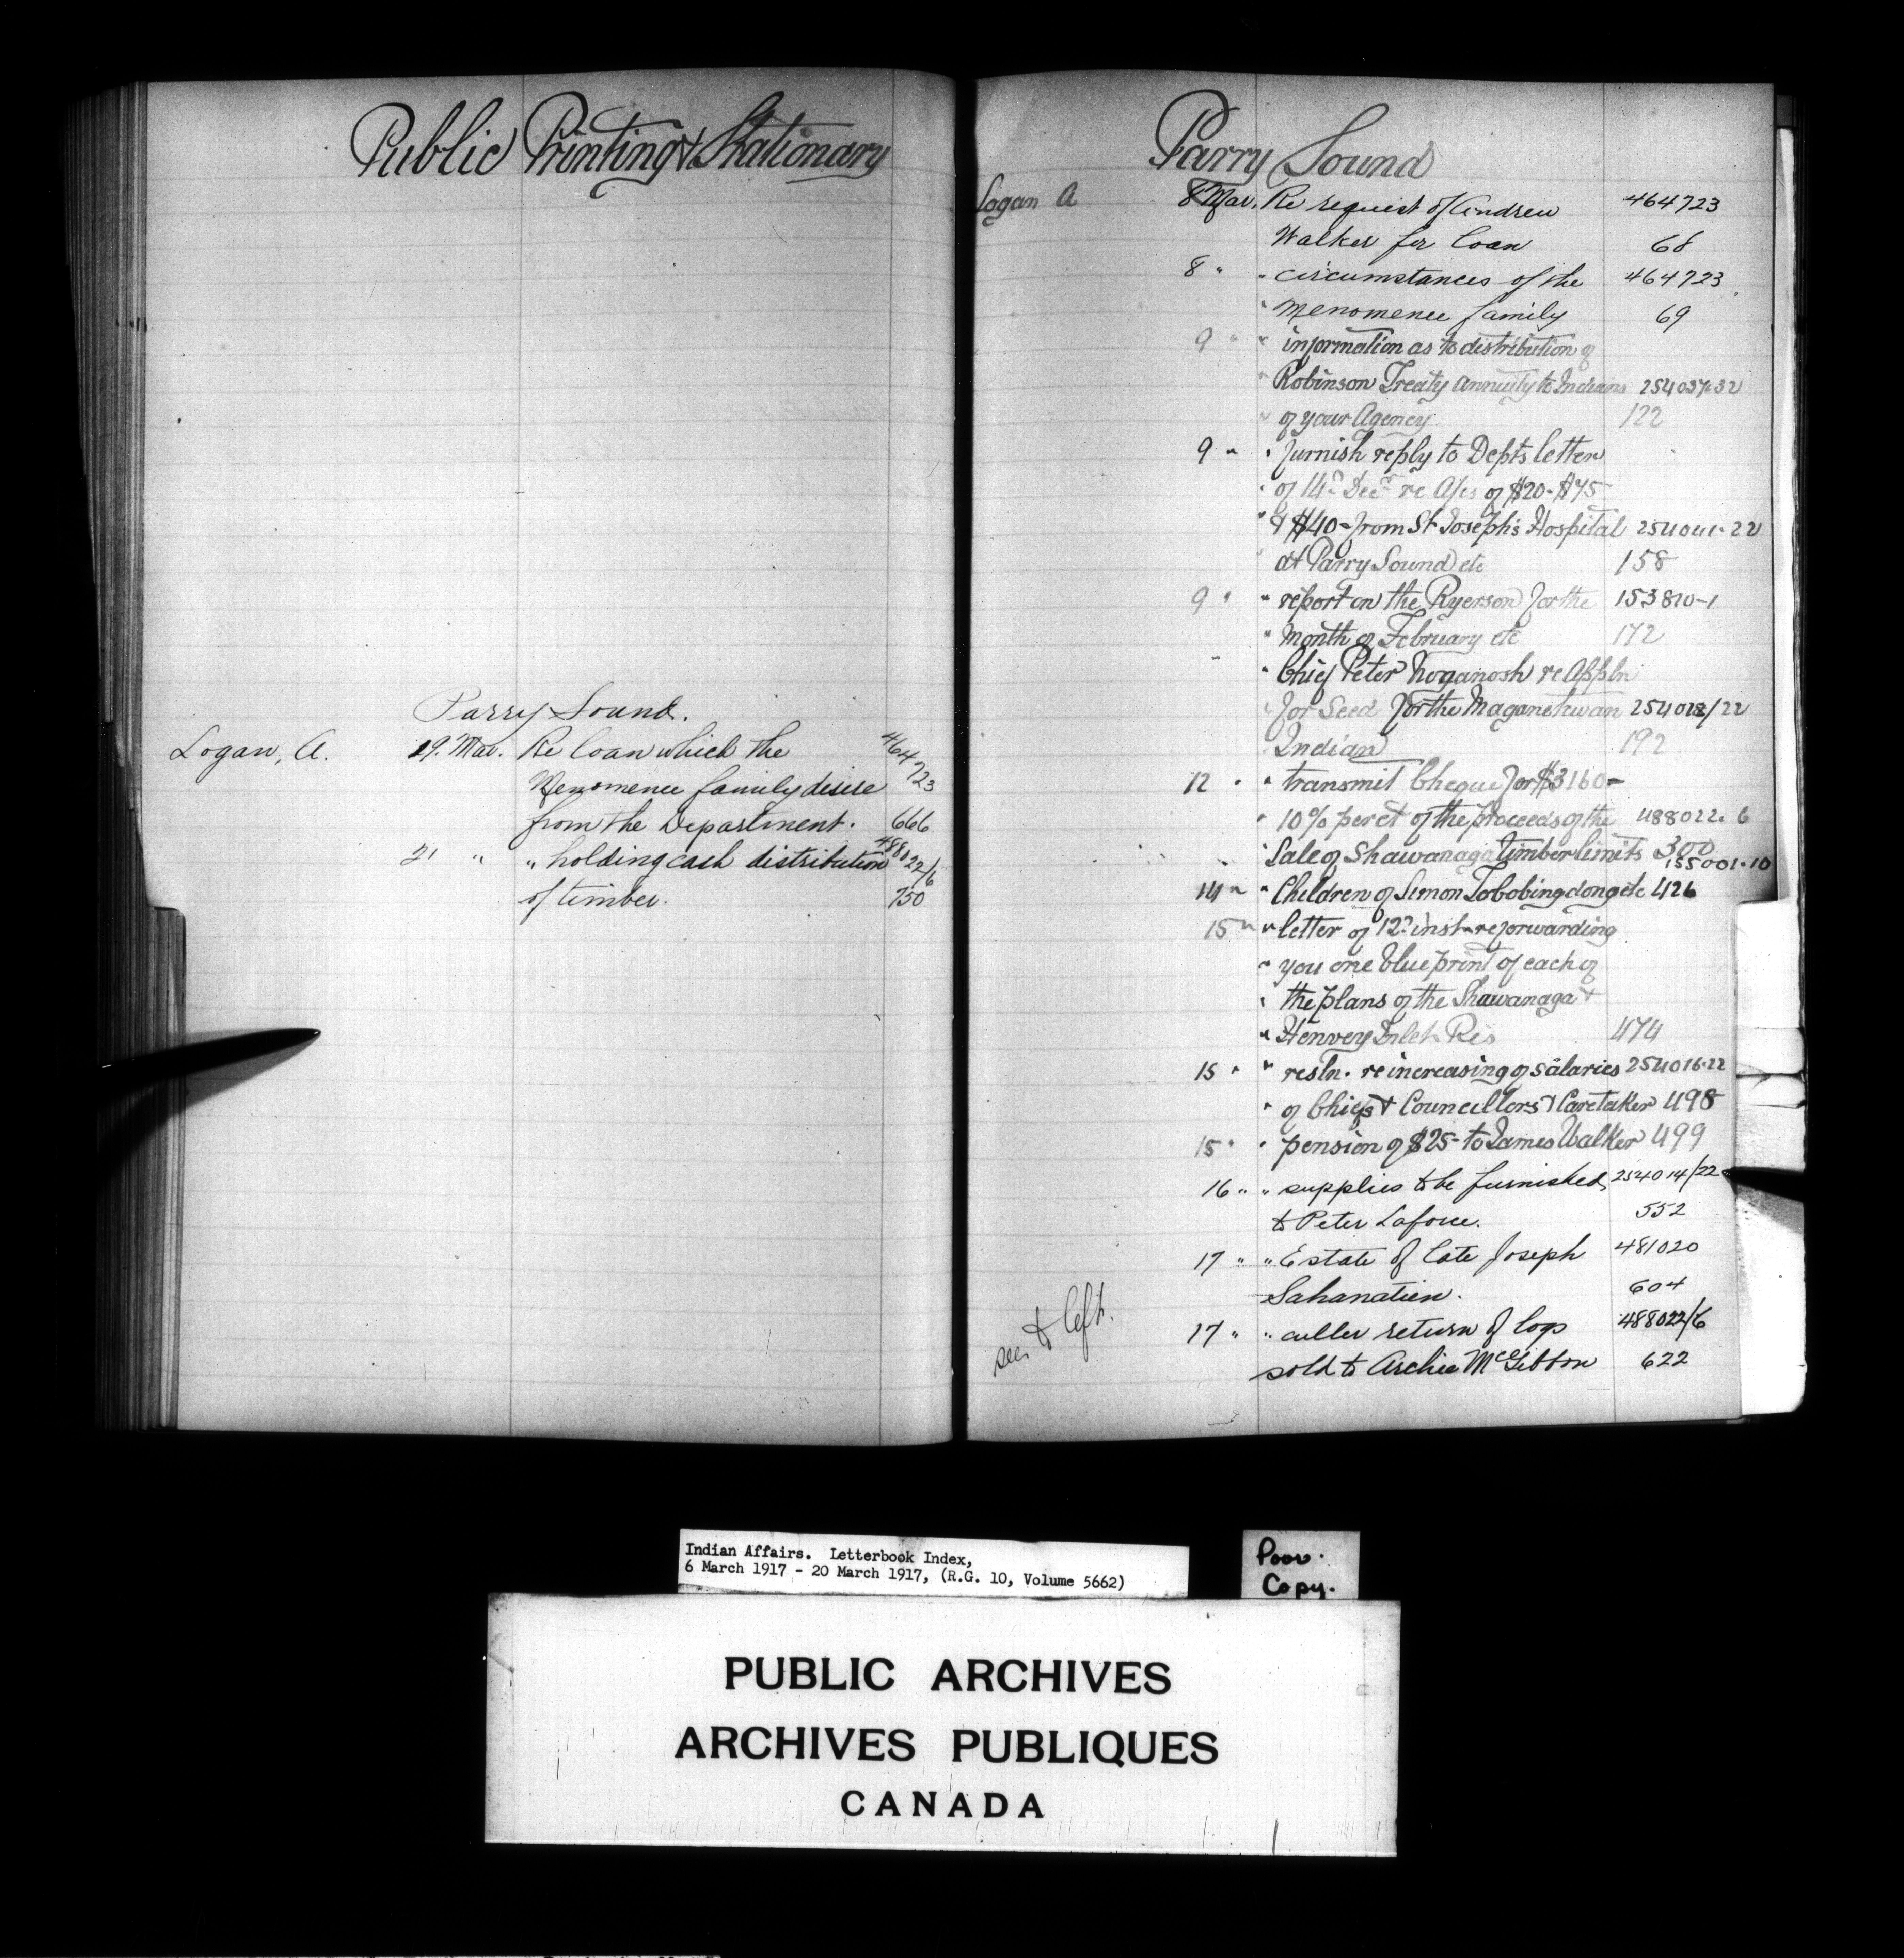 Public Printing & Stationary
Parry Sound.
Logan, A. 19. Mar. Re loan which the 464723
Menomenee family desire
from the Department. 666
21 " " holding cash distribution 488022/6
of timber. 750
Parry Sound
Logan A 8 Mar. Re request of Andrew 464723
Walker for loan 68
8 " " circumstances of the 464723
" Menomenee family 69
9 " " information as to distribution of
" Robinson Treaty annuity to Indians 254037-32
" of your Agency 122
9 " " furnish reply to Depts letter
" of 14th Decr re A/cs of $20- $75-
" & $40- from St Joseph's Hospital 254041-22
" at Parry Sound etc 158
9 " " report on the Ryerson for the 153810-1
" month of February etc 172
" " Chief Peter Noganosh re Appln
" for Seed for the Maganetawan 254018/22
" Indian 192
12 " " transmit Cheque for $3160-
" 10% per ct of the proceeds of the 488022-6
" Sale of Shawanaga timber limits 300
14 " " Children of Simon Tobobingdong etc 155001-10 426
15 " " letter of 12th inst re forwarding
" you one blue print of each of
" the plans of the Shawanaga &
" Henvey Inlet Res 474
15 " " resln. re increasing of salaries 254016-22
" of Chiefs & Councillors & Caretaker 498
15 " " pension of $25- to James Walker 499
16 " " supplies to be furnished 254014/22
to Peter Laforce. 552
17 " " Estate of late Joseph 481020
Sahanatien. 604
see to left.
17 " " culler return of logs 488022/6
sold to Archie McGibbon 622
Indian Affairs. Letterbook Index,
6 March 1917 - 20 March 1917, (R.G. 10, Volume 5662)
Poor.
Copy.
PUBLIC ARCHIVES
ARCHIVES PUBLIQUES
CANADA